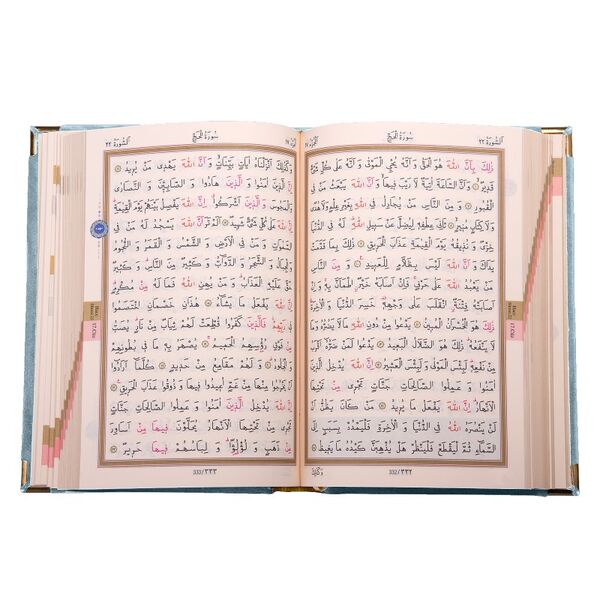 اَلسُّورَةُ ٢٢
سُورَةُ الْحَجِّ
اَلْجُزْءُ ١٧
ذٰلِكَ بِاَنَّ اللّٰهَ هُوَ الْحَقُّ وَ اَنَّهُ يُحْيِ الْمَوْتٰى وَ اَنَّهُ عَلٰى كُلِّ شَىْءٍ
قَدِيرٌ ۞ وَ اَنَّ السَّاعَةَ اٰتِيَةٌ لَا رَيْبَ فِيهَا وَ اَنَّ اللّٰهَ يَبْعَثُ مَنْ فِي
الْقُبُورِ ۞ وَ مِنَ النَّاسِ مَنْ يُجَادِلُ فِي اللّٰهِ بِغَيْرِ عِلْمٍ وَ لَا هُدًى
وَ لَا كِتَابٍ مُنِيرٍ ۞ ثَانِيَ عِطْفِهِ لِيُضِلَّ عَنْ سَبِيلِ اللّٰهِ لَهُ فِي الدُّنْيَا
خِزْيٌ وَ نُذِيقُهُ يَوْمَ الْقِيٰمَةِ عَذَابَ الْحَرِيقِ ۞ ذٰلِكَ بِمَا قَدَّمَتْ
يَدَاكَ وَ اَنَّ اللّٰهَ لَيْسَ بِظَلَّامٍ لِلْعَبِيدِ ۞ وَ مِنَ النَّاسِ
مَنْ يَعْبُدُ اللّٰهَ عَلٰى حَرْفٍ فَاِنْ اَصَابَهُ خَيْرٌ اطْمَاَنَّ بِهِ وَ اِنْ
اَصَابَتْهُ فِتْنَةٌ انْقَلَبَ عَلٰى وَجْهِهِ خَسِرَ الدُّنْيَا وَ الْاٰخِرَةَ
ذٰلِكَ هُوَ الْخُسْرَانُ الْمُبِينُ ۞ يَدْعُوا مِنْ دُونِ اللّٰهِ مَا لَا يَضُرُّهُ وَ مَا
لَا يَنْفَعُهُ ذٰلِكَ هُوَ الضَّلَالُ الْبَعِيدُ ۞ يَدْعُوا لَمَنْ ضَرُّهُ اَقْرَبُ
مِنْ نَفْعِهِ لَبِئْسَ الْمَوْلٰى وَ لَبِئْسَ الْعَشِيرُ ۞ اِنَّ اللّٰهَ يُدْخِلُ
الَّذِينَ اٰمَنُوا وَ عَمِلُوا الصَّالِحَاتِ جَنَّاتٍ تَجْرِي مِنْ تَحْتِهَا
الْاَنْهَارُ اِنَّ اللّٰهَ يَفْعَلُ مَا يُرِيدُ ۞ مَنْ كَانَ يَظُنُّ اَنْ لَنْ
يَنْصُرَهُ اللّٰهُ فِي الدُّنْيَا وَ الْاٰخِرَةِ فَلْيَمْدُدْ بِسَبَبٍ اِلَى
السَّمَاءِ ثُمَّ لْيَقْطَعْ فَلْيَنْظُرْ هَلْ يُذْهِبَنَّ كَيْدُهُ مَا يَغِيظُ ۞
332/٣٣٢
وَكَذٰلِكَ
17.Cüz
اَلْجُزْءُ ١٧
سُورَةُ الْحَجِّ
اَلسُّورَةُ ٢٢
وَ كَذٰلِكَ اَنْزَلْنَاهُ اٰيَاتٍ بَيِّنَاتٍ وَ اَنَّ اللّٰهَ يَهْدِي مَنْ يُرِيدُ ۞
اِنَّ الَّذِينَ اٰمَنُوا وَ الَّذِينَ هَادُوا وَ الصَّابِئِينَ وَ النَّصَارٰى
وَ الْمَجُوسَ وَ الَّذِينَ اَشْرَكُوا اِنَّ اللّٰهَ يَفْصِلُ بَيْنَهُمْ يَوْمَ الْقِيٰمَةِ
اِنَّ اللّٰهَ عَلٰى كُلِّ شَىْءٍ شَهِيدٌ ۞ اَلَمْ تَرَ اَنَّ اللّٰهَ يَسْجُدُ لَهُ مَنْ فِي
السَّمٰوَاتِ وَ مَنْ فِي الْاَرْضِ وَ الشَّمْسُ وَ الْقَمَرُ وَ النُّجُومُ
وَ الْجِبَالُ وَ الشَّجَرُ وَ الدَّوَابُّ وَ كَثِيرٌ مِنَ النَّاسِ وَ كَثِيرٌ
حَقَّ عَلَيْهِ الْعَذَابُ وَ مَنْ يُهِنِ اللّٰهُ فَمَا لَهُ مِنْ مُكْرِمٍ
اِنَّ اللّٰهَ يَفْعَلُ مَا يَشَاءُ ۞ هٰذَانِ خَصْمَانِ اخْتَصَمُوا
فِي رَبِّهِمْ فَالَّذِينَ كَفَرُوا قُطِّعَتْ لَهُمْ ثِيَابٌ مِنْ نَارٍ يُصَبُّ
مِنْ فَوْقِ رُؤُسِهِمُ الْحَمِيمُ ۞ يُصْهَرُ بِهِ مَا فِي بُطُونِهِمْ
وَ الْجُلُودُ ۞ وَ لَهُمْ مَقَامِعُ مِنْ حَدِيدٍ ۞ كُلَّمَا اَرَادُوا
اَنْ يَخْرُجُوا مِنْهَا مِنْ غَمٍّ اُعِيدُوا فِيهَا وَ ذُوقُوا عَذَابَ الْحَرِيقِ ۞
اِنَّ اللّٰهَ يُدْخِلُ الَّذِينَ اٰمَنُوا وَ عَمِلُوا الصَّالِحَاتِ جَنَّاتٍ
تَجْرِي مِنْ تَحْتِهَا الْاَنْهَارُ يُحَلَّوْنَ فِيهَا مِنْ اَسَاوِرَ
مِنْ ذَهَبٍ وَ لُؤْلُؤًا وَ لِبَاسُهُمْ فِيهَا حَرِيرٌ ۞
333/٣٣٣
17.Cüz